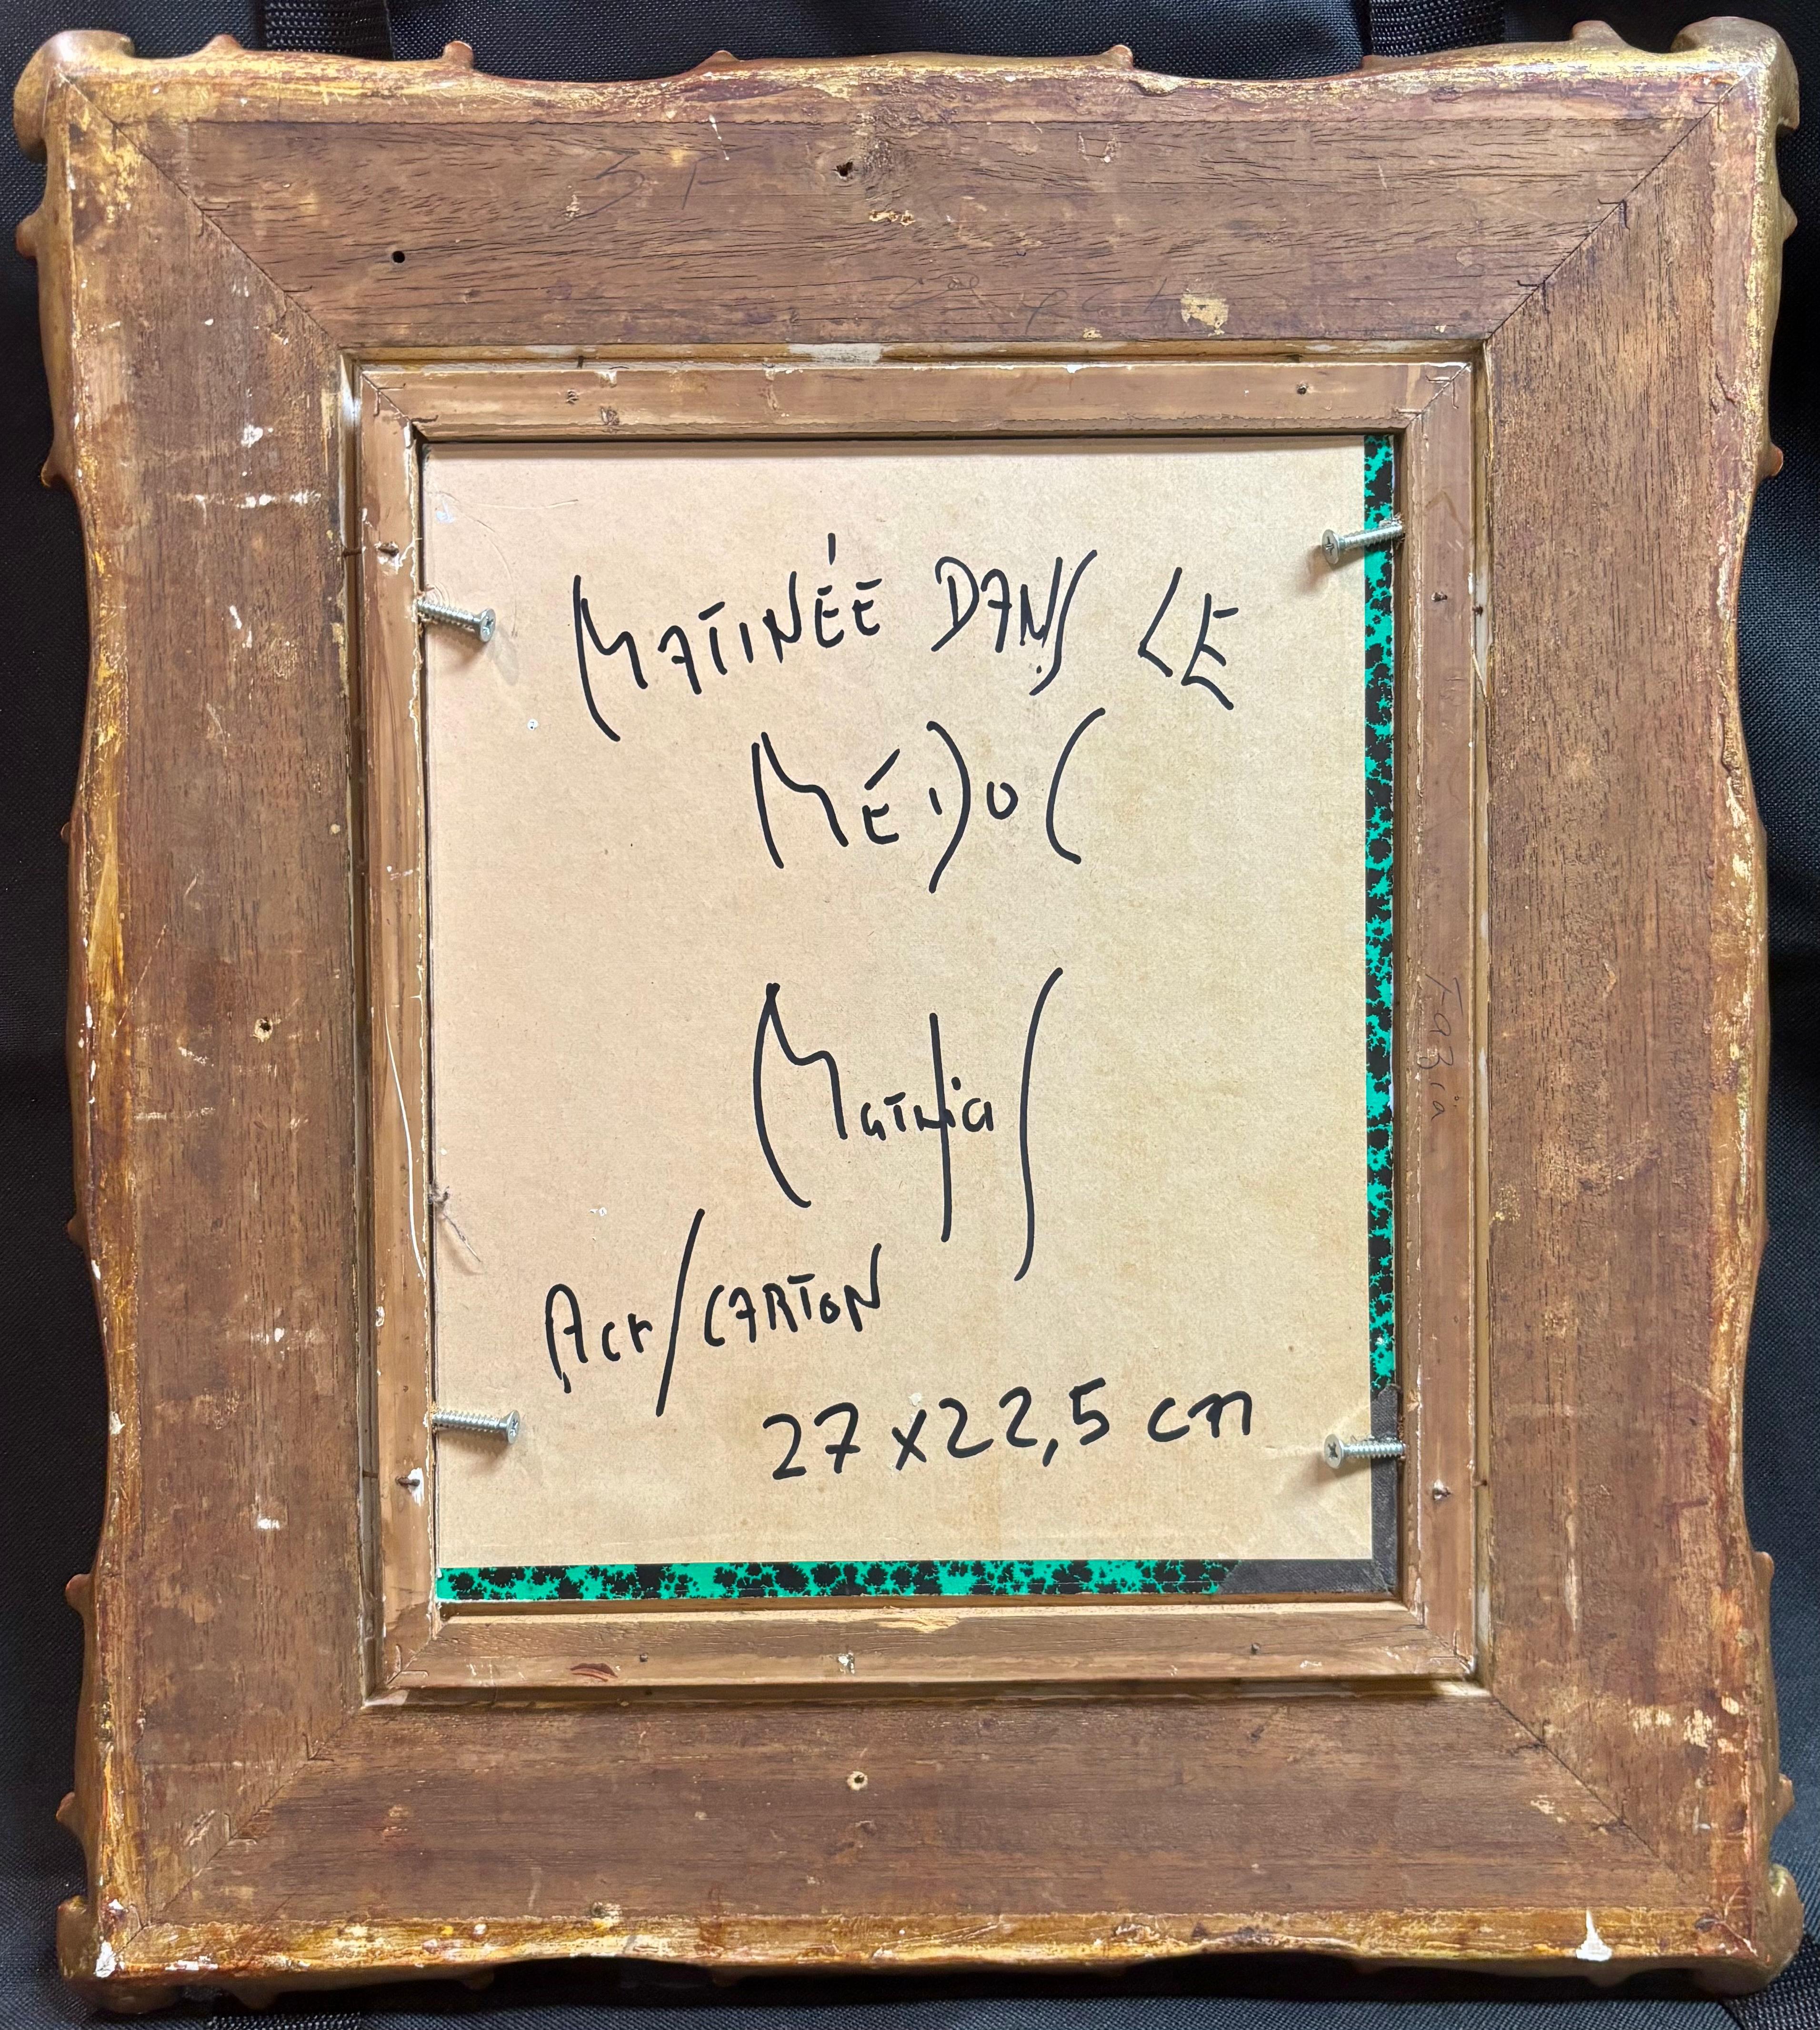 MATINÉE DANS LE
MÉDOC
Mathias
Acr/CARTON
27x22,5 cm